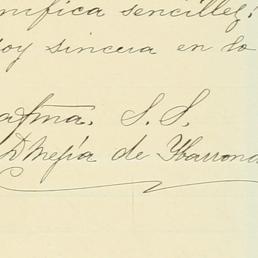 nifica sencillez!
oy sincera en lo
atma. S. S.
Mejía de Ybarrond